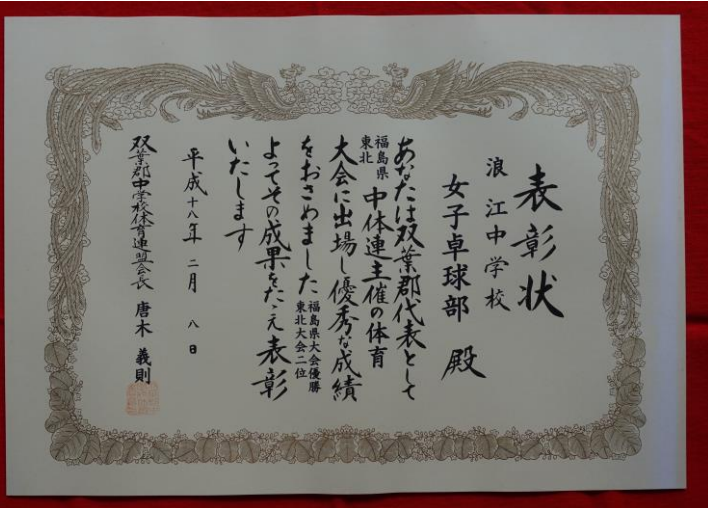 表彰状
浪江中学校
女子卓球部 殿
あなたは双葉郡代表として
福島県
東北
中体連主催の体育
大会に出場し優秀な成績
をおさめました
福島県大会優勝
東北大会二位
よってその成果をたゝえ表彰
いたします
平成十八年 二月 八日
双葉郡中学校体育連盟会長 唐木 義則